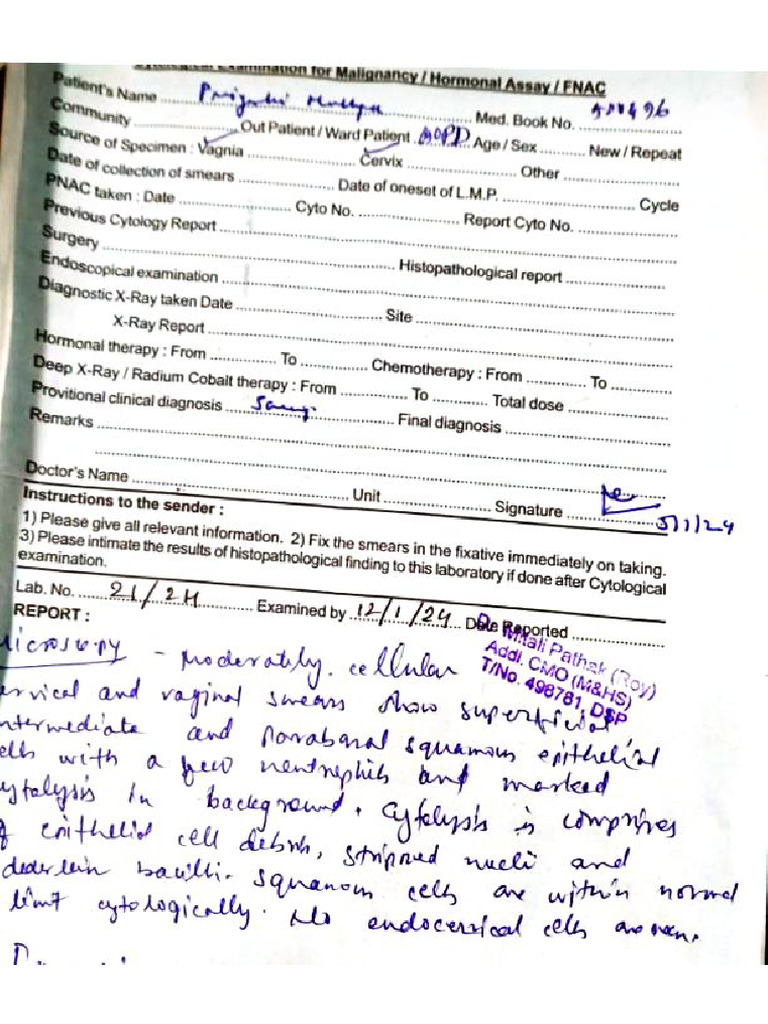 Cytological Examination for Malignancy / Hormonal Assay / FNAC
Patient's Name Med. Book No.
Community Out Patient / Ward Patient GOPD Age / Sex New / Repeat
Source of Specimen : Vagnia Cervix Other
Date of collection of smears Date of oneset of L.M.P. Cycle
PNAC taken : Date Cyto No. Report Cyto No.
Previous Cytology Report
Surgery Histopathological report
Endoscopical examination
Diagnostic X-Ray taken Date Site
X-Ray Report
Hormonal therapy : From To Chemotherapy : From To
Deep X-Ray / Radium Cobalt therapy : From To Total dose
Provitional clinical diagnosis Final diagnosis
Remarks
Doctor's Name Unit Signature
5/1/24
Instructions to the sender :
1) Please give all relevant information. 2) Fix the smears in the fixative immediately on taking.
3) Please intimate the results of histopathological finding to this laboratory if done after Cytological
examination.
Lab. No. 21/24 Examined by 12/1/24 Date Reported
REPORT :
Dr. Mitali Pathak (Roy)
Addl. CMO (M&HS)
T/No. 498761, DSP
Microscopy - Moderately cellular
cervical and vaginal smears show superficial
intermediate and parabasal squamous epithelial
cells with a few neutrophils and marked
cytolysis in background. Cytolysis is comprises
of epithelial cell debris, stripped nucli and
dederlein bacilli. Squamous cells are within normal
limit cytologically. No endocervical cells are seen.